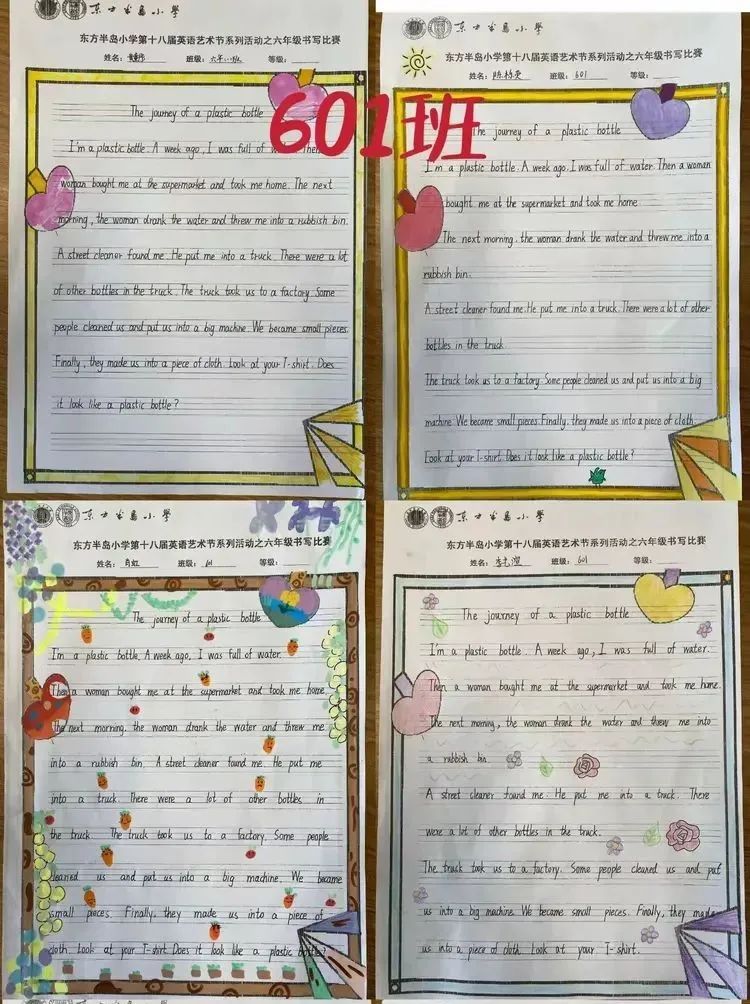 东方半岛小学
东方半岛小学第十八届英语艺术节系列活动之六年级书写比赛
姓名： 班级：六年(1)班 等级：
The journey of a plastic bottle
I'm a plastic bottle. A week ago, I was full of Then
woman bought me at the supermarket and took me home. The next
morning, the woman drank the water and threw me into a rubbish bin.
A street cleaner found me. He put me into a truck. There were a lot
of other bottles in the truck. The truck took us to a factory. Some
people cleaned us and put us into a big machine. We became small pieces.
Finally, they made us into a piece of cloth. Look at your T-shirt. Does
it look like a plastic bottle?
601班
东方半岛小学
东方半岛小学第十八届英语艺术节系列活动之六年级书写比赛
姓名： 班级：601 等级：
The journey of a plastic bottle
I'm a plastic bottle. A week ago. I was full of water. Then a woman
bought me at the supermarket and took me home.
The next morning. the woman drank the water and threw me into a
rubbish bin.
A street cleaner found me. He put me into a truck. There were a lot of other
bottles in the truck.
The truck took us to a factory. Some people cleaned us and put us into a big
machine. We became small pieces. Finally, they made us into a piece of cloth.
Look at your T-shirt. Does it look like a plastic bottle?
东方半岛小学
东方半岛小学第十八届英语艺术节系列活动之六年级书写比赛
姓名：肖虹 班级：601 等级：
The journey of a plastic bottle
I'm a plastic bottle. A week ago, I was full of water.
Then a woman bought me at the supermarket and took me home.
The next morning, the woman drank the water and threw me
into a rubbish bin. A street cleaner found me. He put me
into a truck. There were a lot of other bottles in
the truck. The truck took us to a factory. Some people
cleaned us and put us into a big machine. We became
small pieces. Finally, they made us into a piece of
cloth. Look at your T-shirt. Does it look like a plastic bottle?
东方半岛小学
东方半岛小学第十八届英语艺术节系列活动之六年级书写比赛
姓名： 班级：601 等级：
The journey of a plastic bottle
I'm a plastic bottle. A week ago, I was full of water.
Then a woman bought me at the supermarket and took me home.
The next morning, the woman drank the water and threw me into
a rubbish bin.
A street cleaner found me. He put me into a truck. There
were a lot of other bottles in the truck.
The truck took us to a factory. Some people cleaned us and put
us into a big machine. We became small pieces. Finally, they made
us into a piece of cloth. Look at your T-shirt.